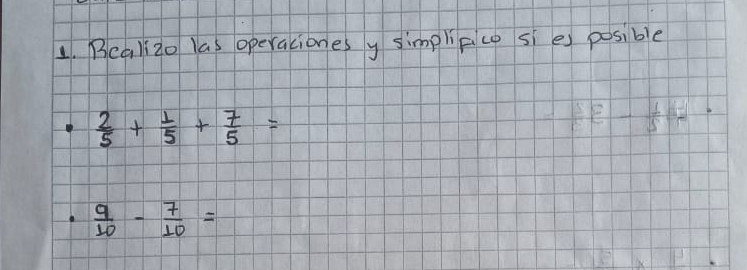 1. Realizo las operaciones y simplifico si es posible
• 2/5 + 1/5 + 7/5 =
• 9/10 - 7/10 =